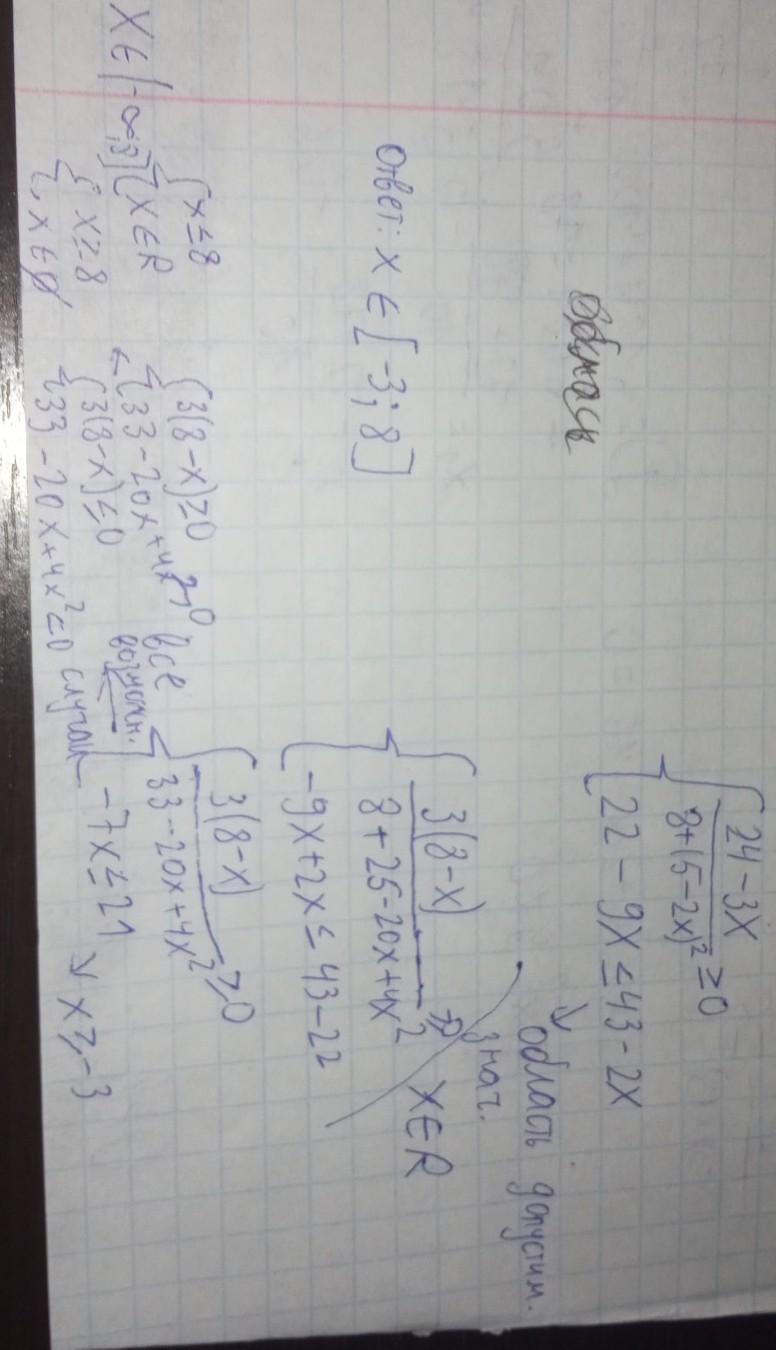 { 24 - 3x / 8 + (5 - 2x)² ≥ 0
22 - 9x ≤ 43 - 2x
↓ область допустим.
знач.
{ 3(8-x) / 8 + 25 - 20x + 4x² ⇒ x ∈ R
-9x + 2x ≤ 43 - 22
{ 3(8-x) / 33 - 20x + 4x² ≥ 0
-7x ≤ 21 → x ≥ -3
все
возможн.
случаи
{ 3(8-x) ≥ 0
33 - 20x + 4x² > 0
{ 3(8-x) ≤ 0
33 - 20x + 4x² < 0
{ x ≤ 8
x ∈ R
{ x ≥ 8
x ∈ ∅
x ∈ (-∞; 8]
Ответ: x ∈ [-3; 8]